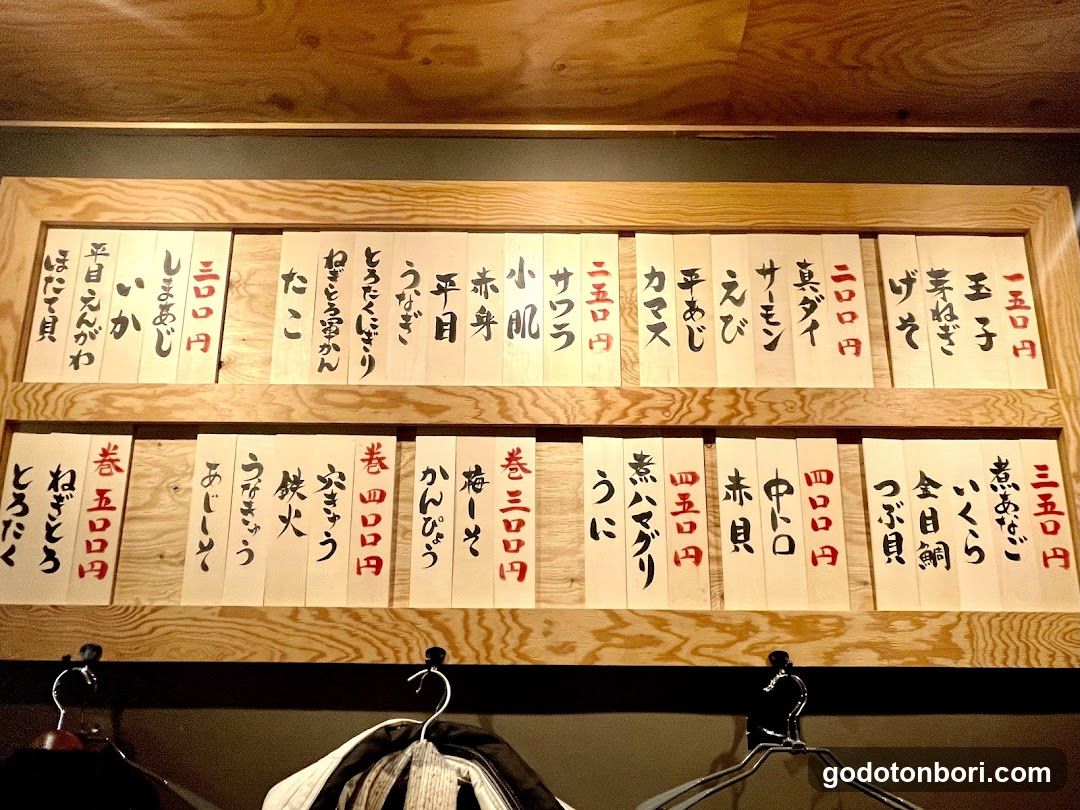 一五〇円
玉子
芽ねぎ
げそ
二〇〇円
真ダイ
サーモン
えび
平あじ
カマス
二五〇円
サワラ
小肌
赤身
平目
うなぎ
とろたくにぎり
ねぎとろ軍かん
たこ
三〇〇円
しまあじ
いか
平目えんがわ
ほたて貝
三五〇円
煮あなご
いくら
金目鯛
つぶ貝
四〇〇円
中トロ
赤貝
四五〇円
煮ハマグリ
うに
巻三〇〇円
梅しそ
かんぴょう
巻四〇〇円
穴きゅう
鉄火
うなきゅう
あじしそ
巻五〇〇円
ねぎとろ
とろたく
godotonbori.com